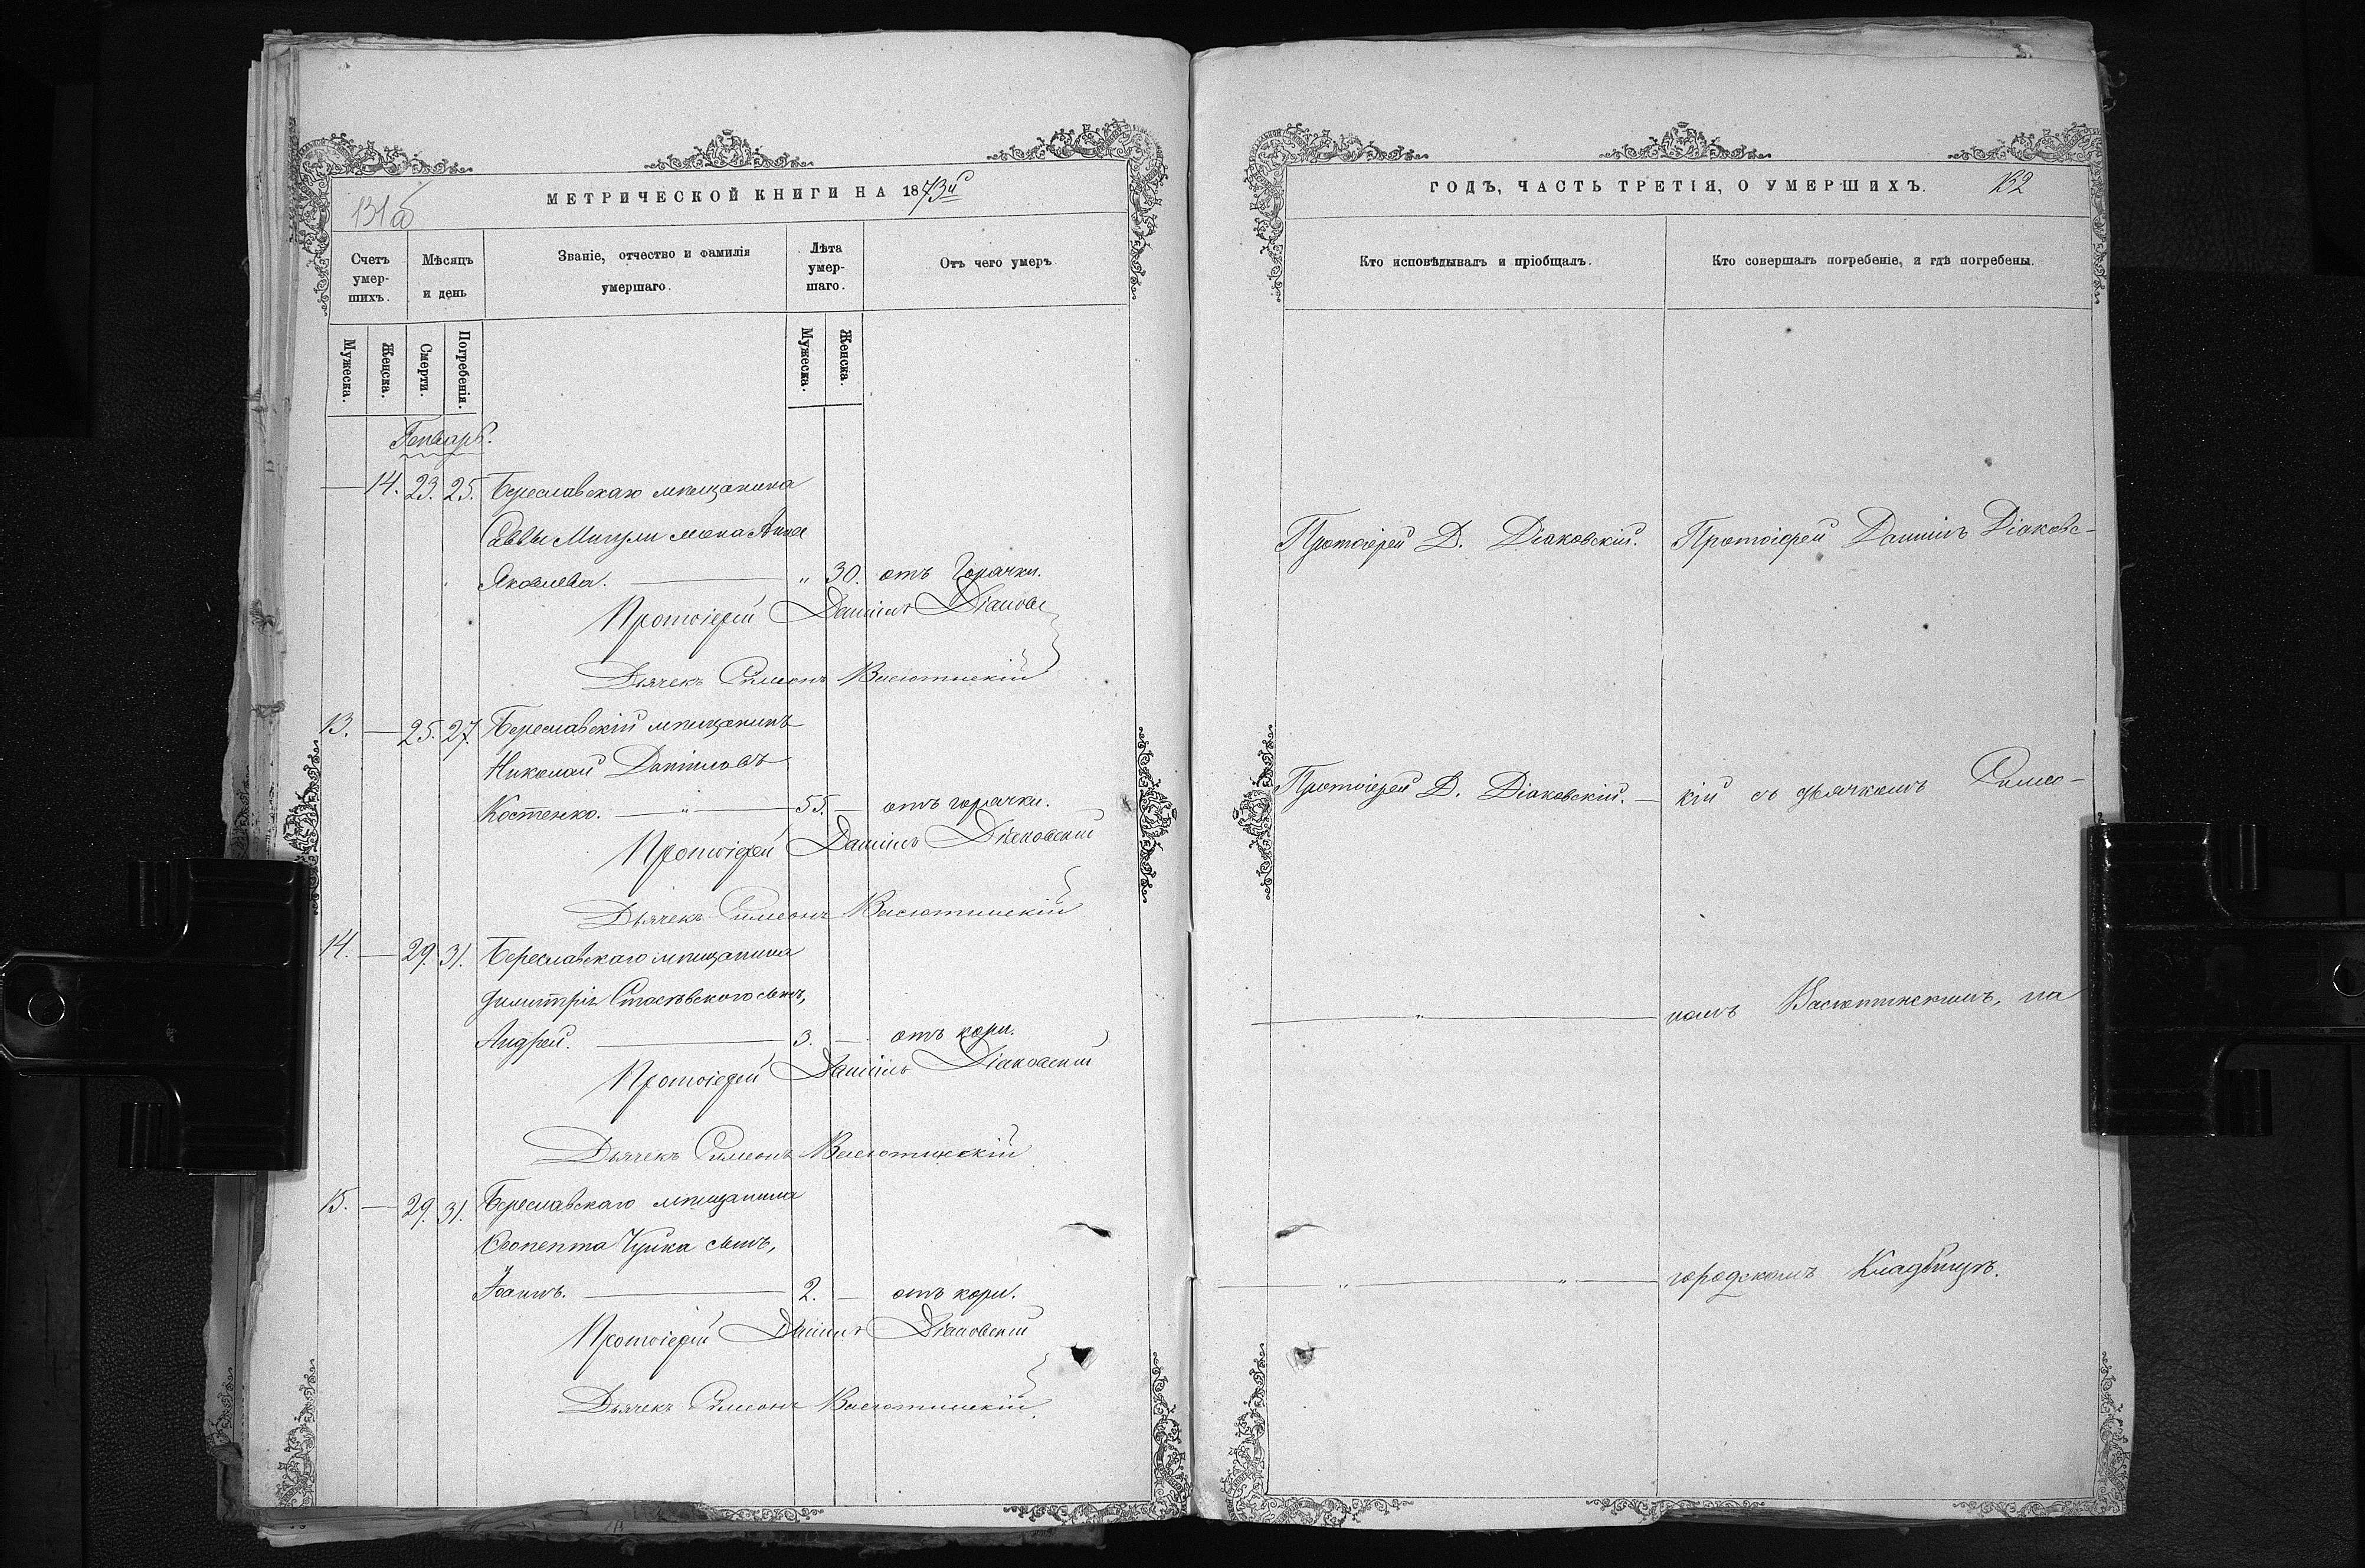 131об
МЕТРИЧЕСКОЙ КНИГИ НА 1873й
Счетъ умер-шихъ.
Мѣсяцъ и день
Званіе, отчество и фамилія умершаго.
Лѣта умер-шаго.
Отъ чего умеръ
Мужеска.
Женска.
Смерти.
Погребенія.
Мужеска.
Женска.
Генварь.
— 14. 23. 25. Береславскаго мѣщанина
Саввы жена Анна
Яковлева. — " 30. отъ горячки.
Протоіерей Даніилъ
Дьячекъ Симеонъ Васютинскій
13. — 25. 27. Береславскій мѣщанинъ
Николай Даніиловъ
Костенко. — " — 55. — отъ горячки.
Протоіерей Даніилъ Діаковскій
Дьячекъ Симеонъ Васютинскій
14. — 29. 31. Береславскаго мѣщанина
Димитрія сынъ,
Андрей. — 3. — отъ кори.
Протоіерей Даніилъ Діаковскій
Дьячекъ Симеонъ Васютинскій
15. — 29. 31. Береславскаго мѣщанина
сынъ,
Іоаннъ. — 2. — отъ кори.
Протоіерей Даніилъ Діаковскій
Дьячекъ Симеонъ Васютинскій
ГОДЪ, ЧАСТЬ ТРЕТІЯ, О УМЕРШИХЪ.
132
Кто исповѣдывалъ и пріобщалъ.
Кто совершалъ погребеніе, и гдѣ погребены.
Протоіерей Д. Діаковскій. Протоіерей Даніилъ Діаковс-
Протоіерей Д. Діаковскій. — кій съ дьячкомъ Симео-
— " — номъ Васютинскимъ, на
— " — " — городскомъ Кладбищѣ.